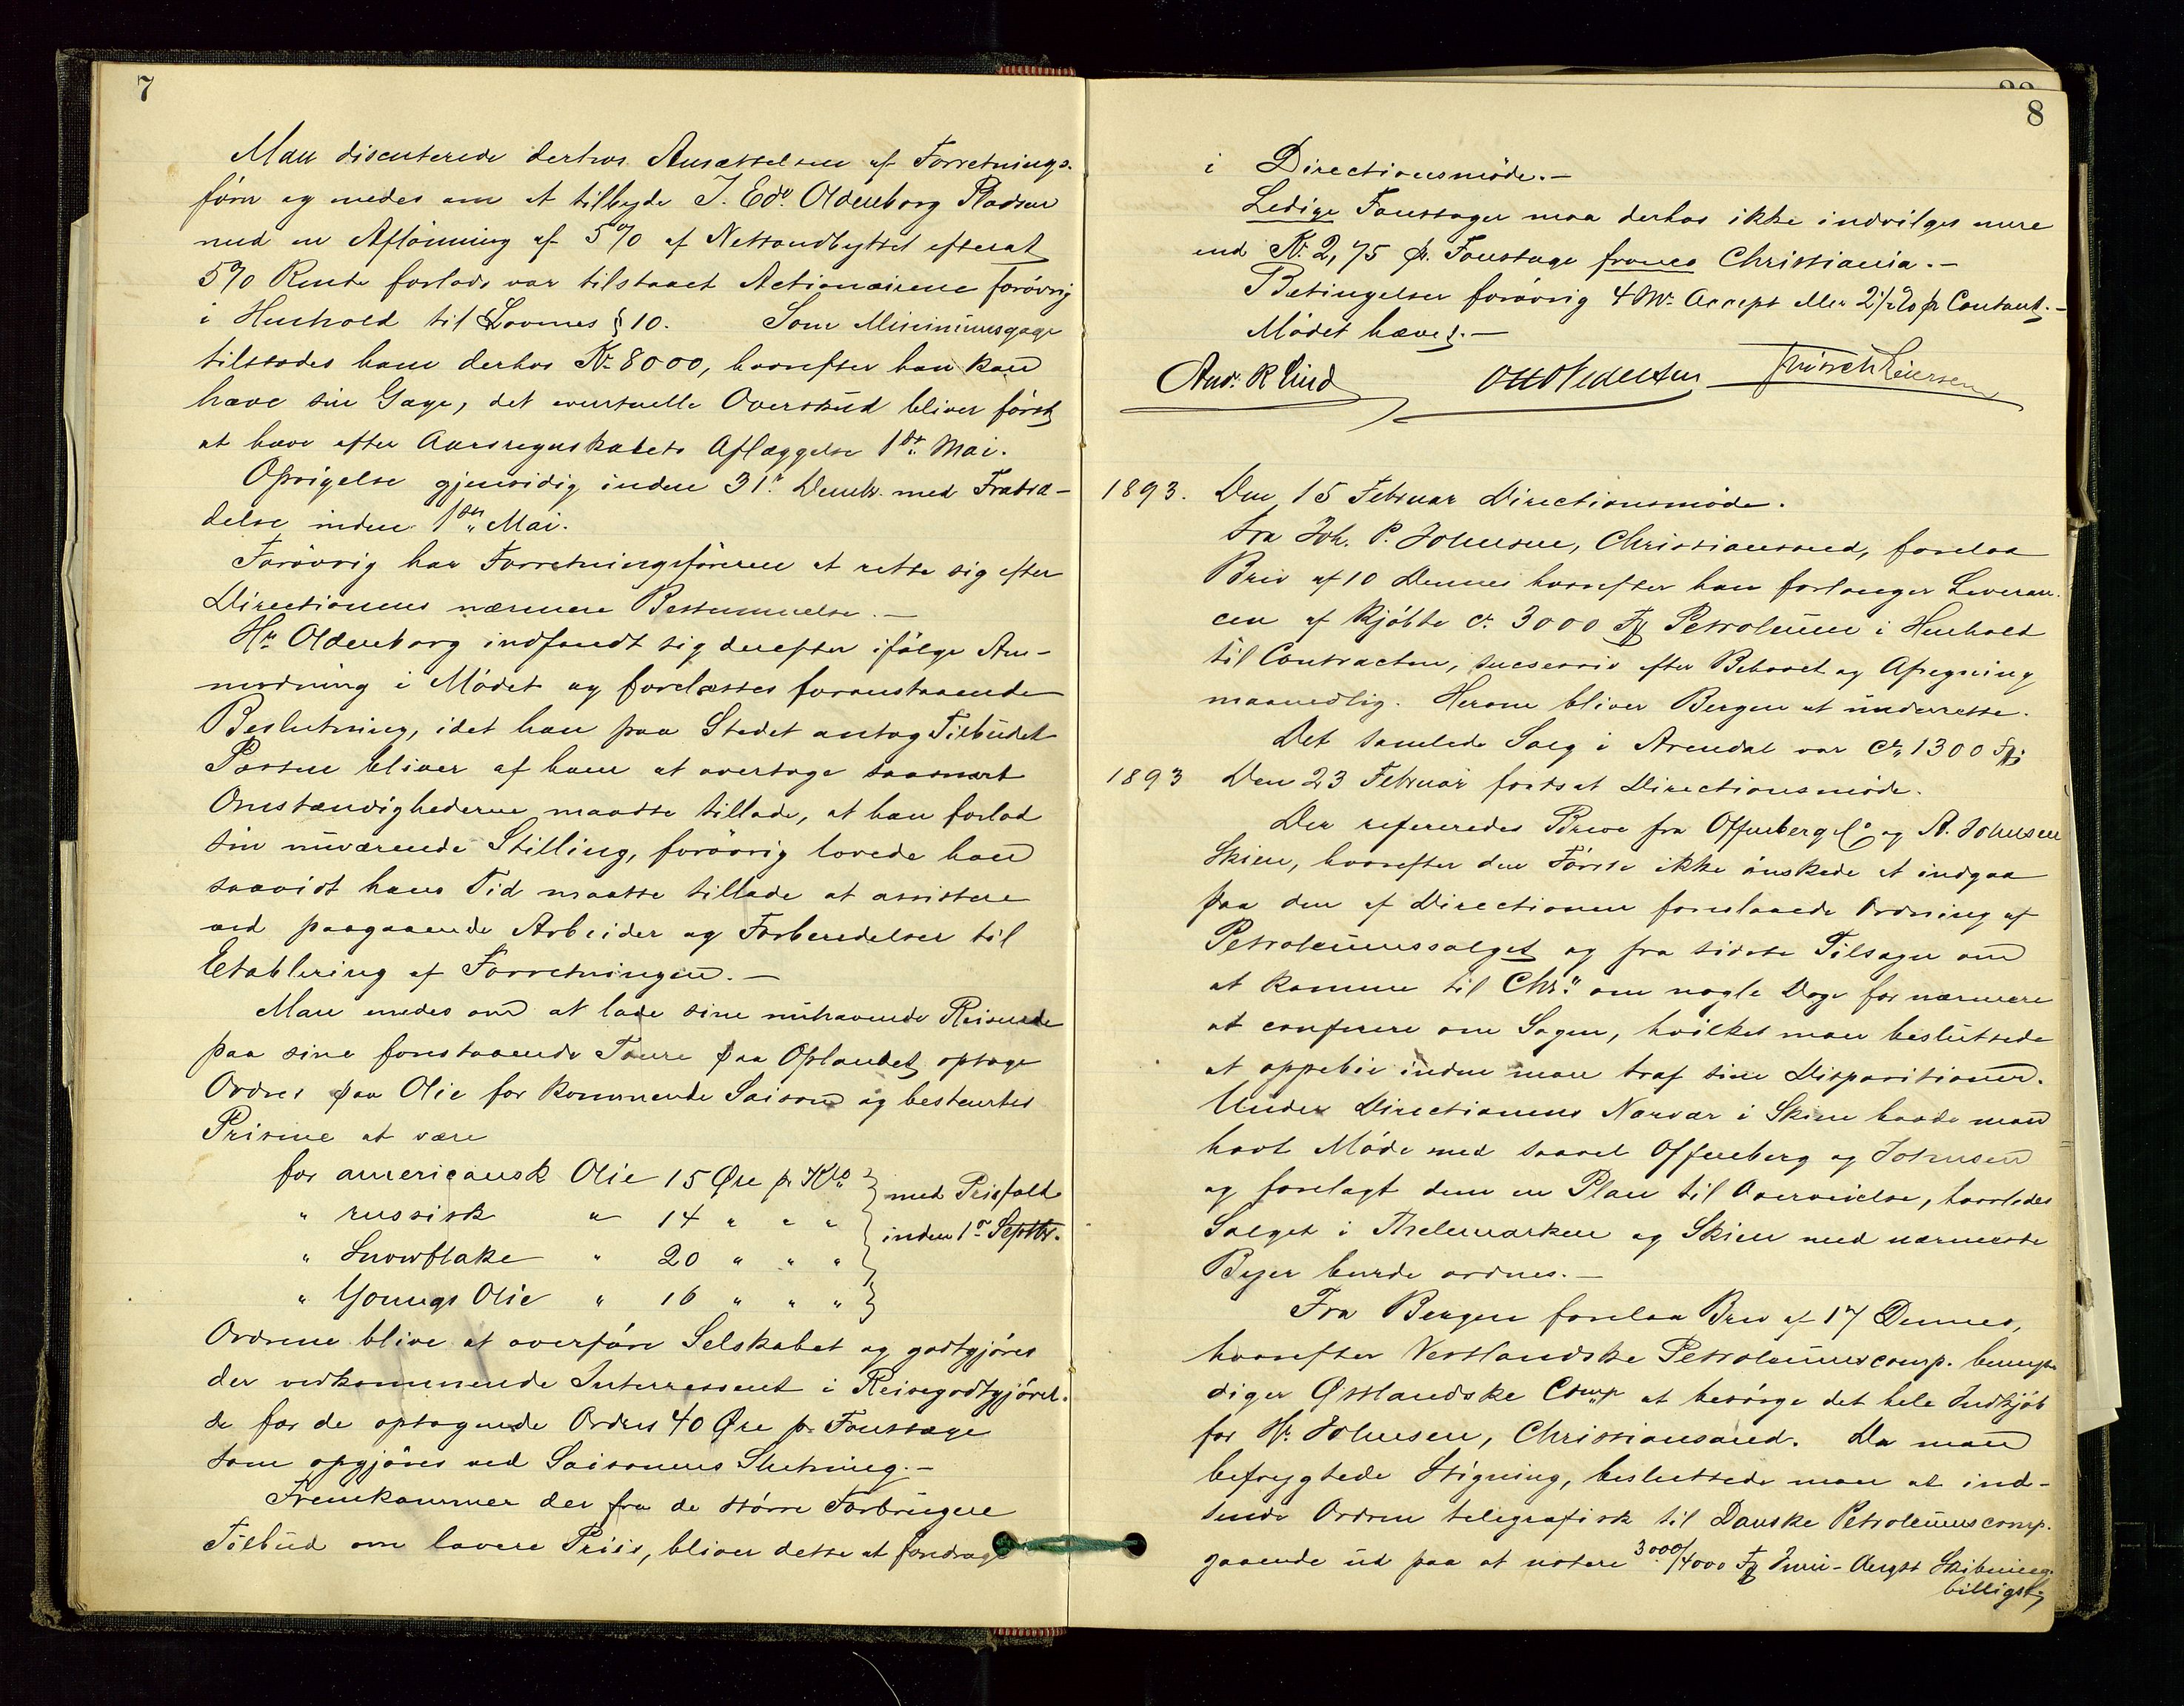 7
Man discuterede derhos Ansættelsen af Forretnings-
förer og enedes om at tilbyde J. Edv. Oldenborg Pladsen
med en Aflönning af 5% af Nettoudbyttet efterat
5% Rente forlods var tilstaaet Actionairerne forövrig
i Henhold til Lovenes § 10. Som Minimumsgage
tilstodes ham derhos Kr 8000, hvorefter han kan
hæve sin Gage, det eventuelle Overskud bliver först
at hæve efter Aarsregnskabets Aflæggelse 1ste Mai.
Opsigelse gjensidig inden 31. Decmbr. med Fratræ-
delse inden 1ste Mai.
Forövrig har Forretningsföreren at rette sig efter
Directionens nærmere Bestemmelse.—
Hr. Oldenborg indfandt sig derefter ifölge An-
modning i Mödet og forelæstes foranstaaende
Beslutning, idet han paa Stedet antog Tilbudet
Posten bliver af ham at overtage saasnart
Omstændighederne maatte tillade, at han forlod
sin nuværende Stilling, forövrig lovede han
saavidt hans Tid maatte tillade at assistere
ved paagaaende Arbeider og Forberedelser til
Etablering af Forretningen.—
Man enedes om at lade sine nuhavende Reisende
paa sine forestaaende Toure paa Oplandet optage
Ordres paa Olie for kommende Saison og bestemtes
Priserne at være
for americansk Olie 15 Øre pr Kilo } med Prisfald
" russisk " 14 " " " } inden 1ste Septbr.
" Snowflake " 20 " " " }
" Youngs Olie " 16 " " " }
Ordrene blive at overföre Selskabet og godtgjöres
der vedkommende Interessent i Reisegodtgjörel-
se for de optagende Ordres 40 Øre pr Foustage
som opgjöres ved Saisonens Slutning.—
Fremkommer der fra de större Forbrugere
Tilbud om lavere Priis, bliver dette at foredrage
8
i Directionsmöde.—
Ledige Foustager maa derhos ikke indvilges mere
end Kr. 2,75 pr. Foustage franco Christiania.—
Betingelser forövrig 4 Mdr. Accept eller 2½% pr Contant.—
Mödet hævet.—
Andr. R Lind Otto Pedersen
1893. Den 15 Februar Directionsmöde.
Fra Joh. P. Johnsen, Christianssand, forelaa
Brev af 10 Dennes hvorefter han forlanger Leveran-
cen af kjöbte ca 3000 Fg Petroleum i Henhold
til Contracten, succesiv efter Behovet og Afregning
maanedlig. Herom bliver Bergen at underrette.
Det samlede Salg i Arendal var ca 1300 Fg
1893 Den 23 Februar fortsat Directionsmöde.
Der refereredes Breve fra Offenberg & Co og A. Johnsen
Skien, hvorefter den Förste ikke önskede at indgaa
paa den af Directionen foreslaaede Ordning af
Petroleumssalget og fra sidste Tilsagn om
at komme til Chr.a om nogle Dage for nærmere
at conferere om Sagen, hvilket man besluttede
at oppebie inden man traf sine Dispositioner.
Under Directionens Nærvær i Skien havde man
havt Möde med saavel Offenberg og Johnsen
og forelagt dem en Plan til Overveielse, hvorledes
Salget i Thelemarken og Skien med nærmeste
Byer burde ordnes.—
Fra Bergen forelaa Brev af 17 Dennes,
hvorefter Vestlandske Petroleumscomp. bemyn-
diger Østlandske Comp at besörge det hele Indkjöb
for Hr. Johnsen, Christianssand. Da man
befrygtede Stigning, besluttede man at ind-
sende Ordren telegrafisk til Danske Petroleumscomp.
gaaende ud paa at notere 3000/4000 Fg Juni-Augst Skibning
billigst